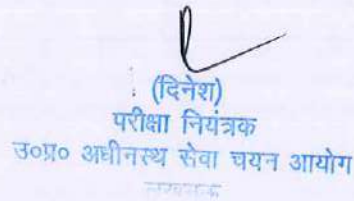 (दिनेश)
परीक्षा नियंत्रक
उ०प्र० अधीनस्थ सेवा चयन आयोग
लखनऊ